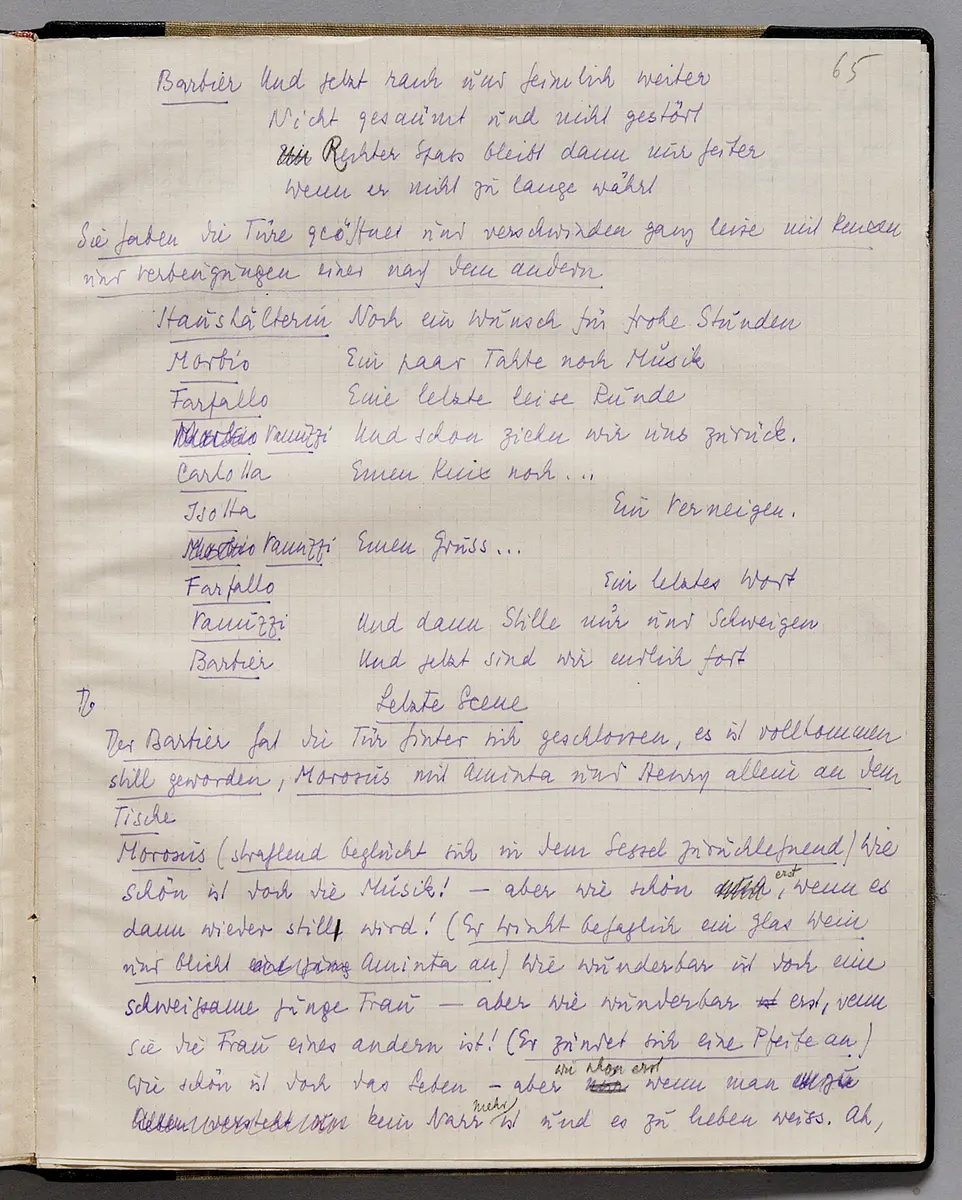 65
Barbier Und jetzt rasch und heimlich weiter
Nicht gesäumt und nicht gestört
Rechter Spass bleibt dann nur heiter
wenn er nicht zu lange währt
Sie haben die Türe geöffnet und verschwinden ganz leise mit Knixen
und Verbeugungen einer nach dem andern
Haushälterin Noch ein Wunsch für frohe Stunden
Morbio Ein paar Takte noch Musik
Farfallo Eine letzte leise Runde
Vanuzzi Und schon ziehn wir uns zurück.
Carlotta Einen Knix noch ...
Isotta Ein Verneigen.
Vanuzzi Einen Gruss ...
Farfallo Ein letztes Wort
Vanuzzi Und dann Stille nur und Schweigen
Barbier Und jetzt sind wir endlich fort
Letzte Scene
Der Barbier hat die Tür hinter sich geschlossen, es ist vollkommen
still geworden, Morosus mit Aminta und Henry allein an dem
Tische
Morosus (strahlend beglückt sich in dem Sessel zurücklehnend) Wie
schön ist doch die Musik! – aber wie schön erst, wenn es
dann wieder still wird! (Er trinkt behaglich ein Glas Wein
und blickt Aminta an) Wie wunderbar ist doch eine
schweigsame junge Frau – aber wie wunderbar erst, wenn
sie die Frau eines andern ist! (Er zündet sich eine Pfeife an)
Wie schön ist doch das Leben – aber wie schön erst wenn man
kein Narr mehr ist und es zu leben weiss. Ah,